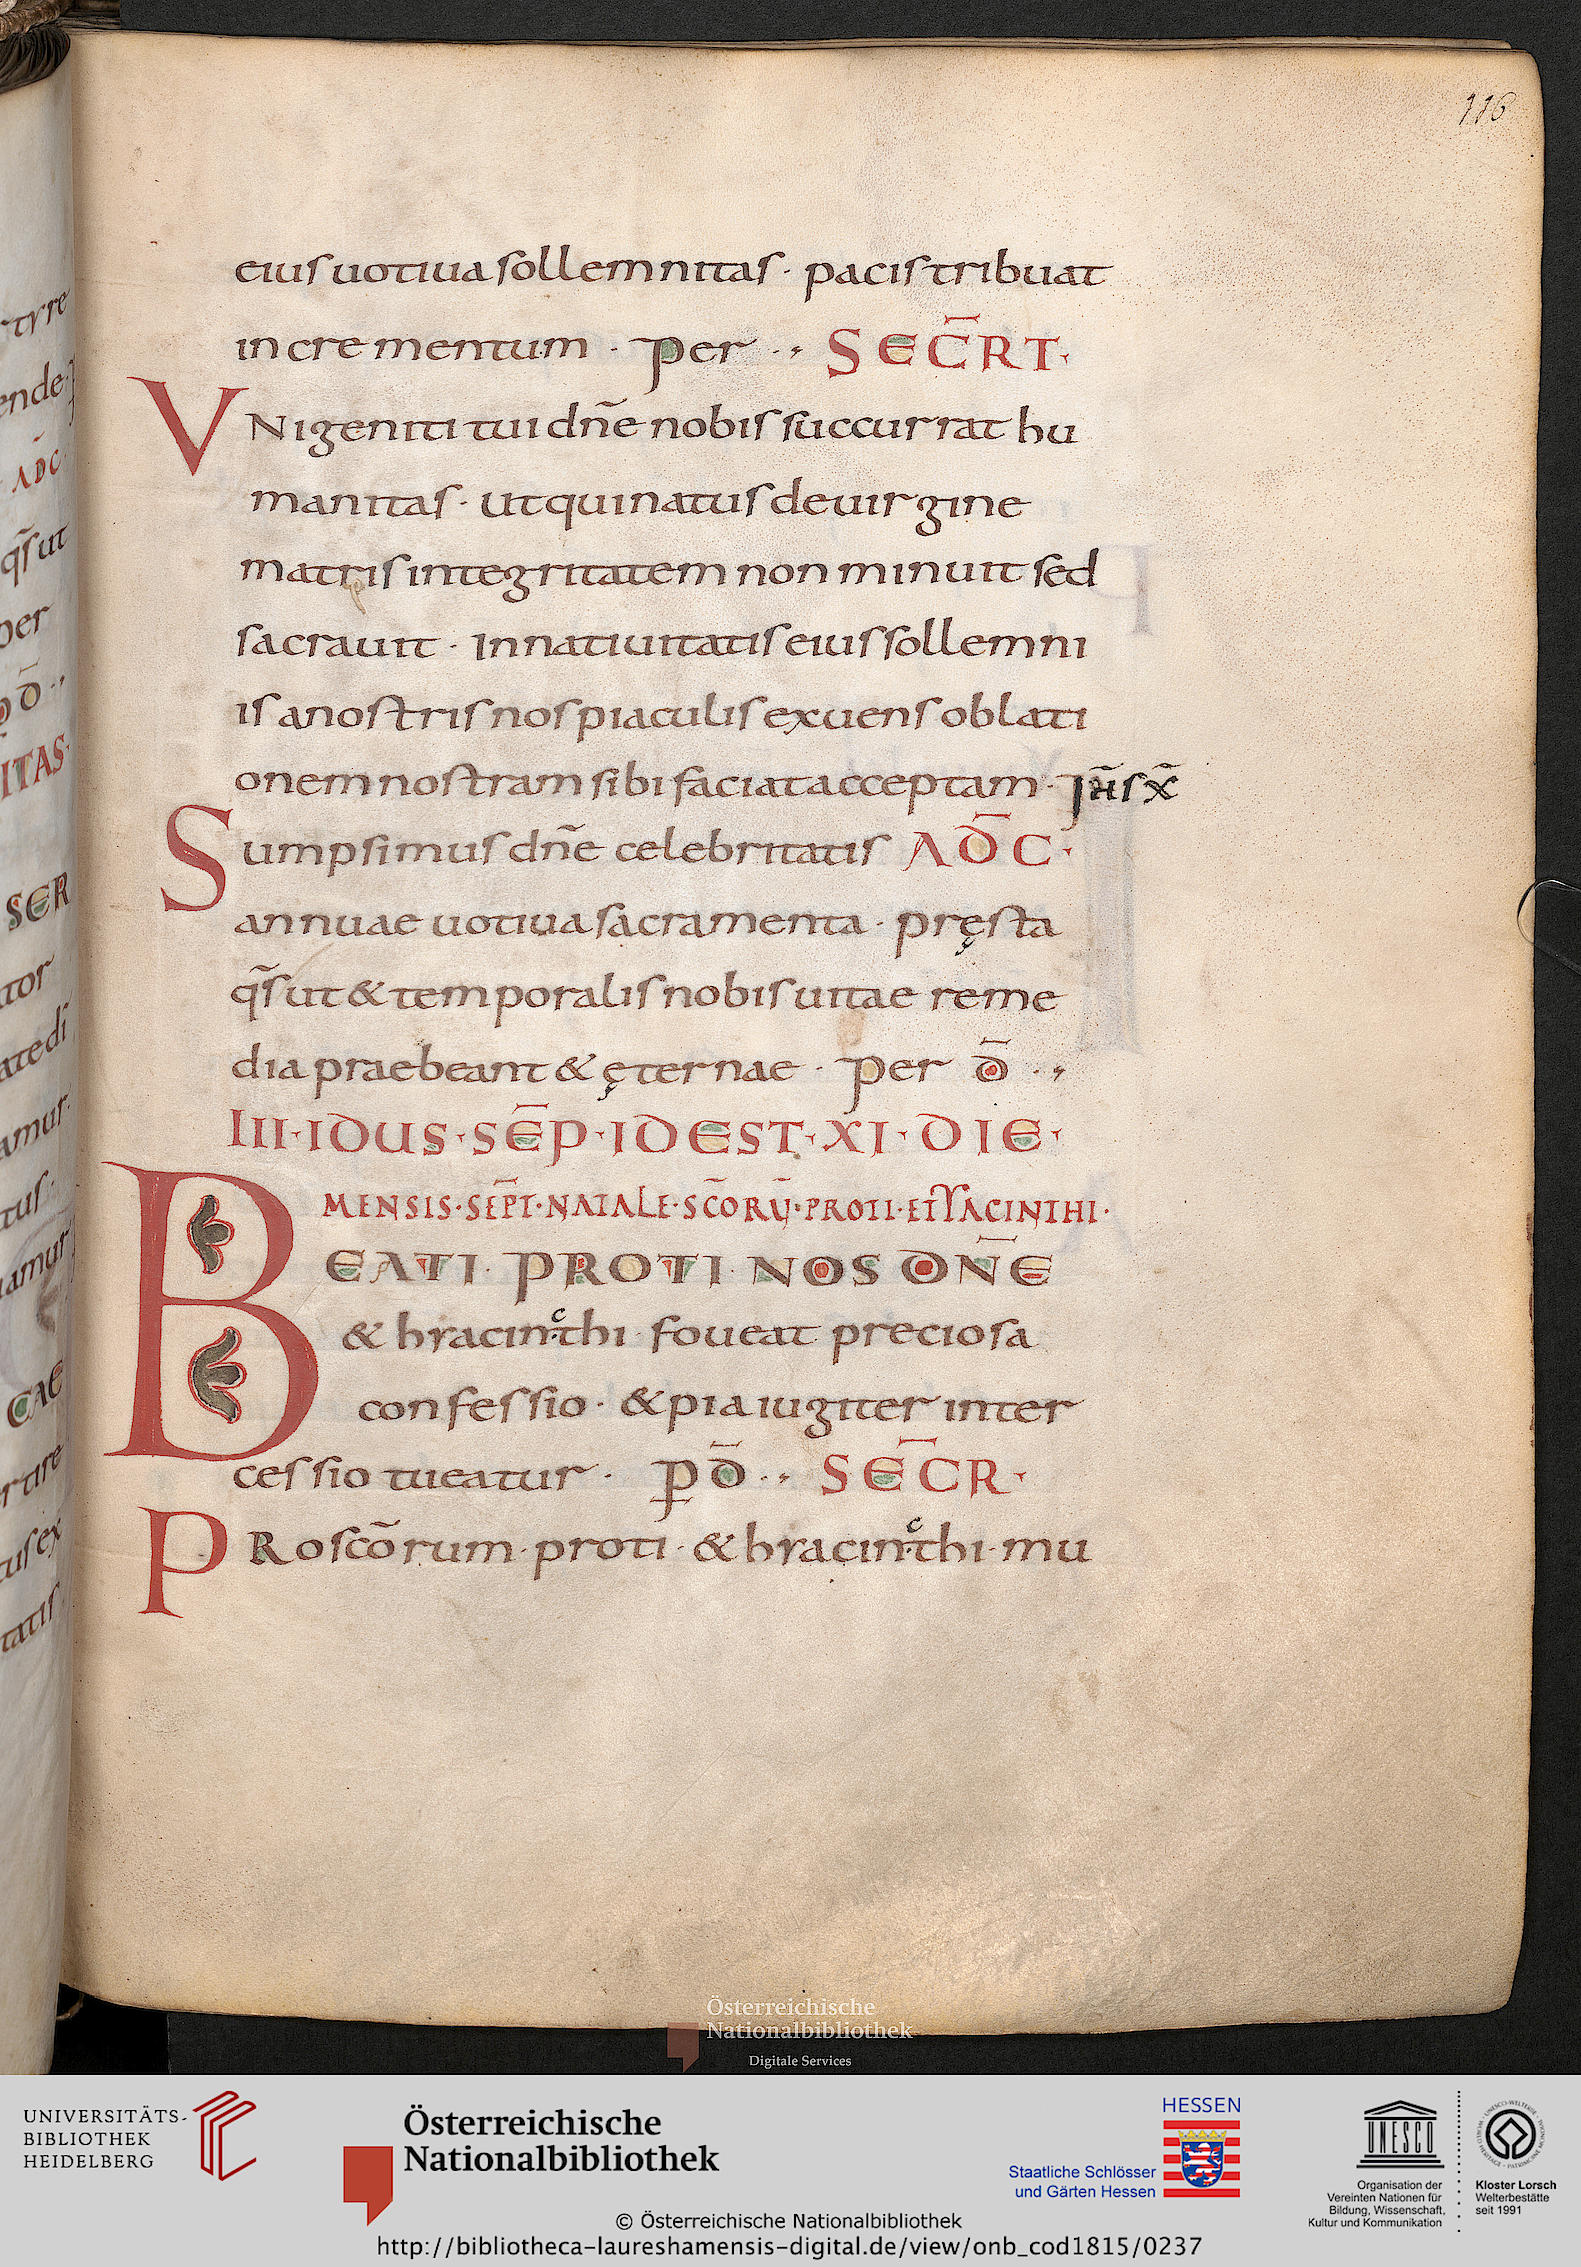 116
eius uotiua sollemnitas · pacis tribuat
incrementum · Per · , SECR̄T ·
VNigeniti tui dn̄e nobis succurrat hu
manitas · ut qui natus de uirgine
matris integritatem non minuit sed
sacrauit · In natiuitatis eius sollemni
is a nostris nos piaculis exuens oblati
onem nostram sibi faciat acceptam · Ih̄s x̄
Sumpsimus dn̄e celebritatis AD̄C ·
annuae uotiua sacramenta · pręsta
q̄s ut & temporalis nobis uitae reme
dia praebeant & ęternae · Per d̄ · ,
III · IDUS · SEP̄ · ID EST · XI · DIE ·
MENSIS · SEP̄T · NATALE · SC̄ORŪ · PROTI · ET YACINTHI ·
BEATI · PROTI · NOS DN̄E
& hyacincthi · foueat preciosa
confessio · & pia iugiter inter
cessio tueatur · p d̄ · , SEC̄R ·
PRo scōrum · proti · & hyacincthi · mu
tyre
ende ·
AD̄C
q̄s ut
per
d̄ · ,
ITAS ·
SER
tor
ate di
amur ·
tus ·
amur
CAE
tire
tus ex
tatis ·
Österreichische
Nationalbibliothek
Digitale Services
UNIVERSITÄTS-
BIBLIOTHEK
HEIDELBERG
Österreichische
Nationalbibliothek
HESSEN
Staatliche Schlösser
und Gärten Hessen
UNESCO
Organisation der
Vereinten Nationen für
Bildung, Wissenschaft,
Kultur und Kommunikation
Kloster Lorsch
Welterbestätte
seit 1991
© Österreichische Nationalbibliothek
http://bibliotheca-laureshamensis-digital.de/view/onb_cod1815/0237